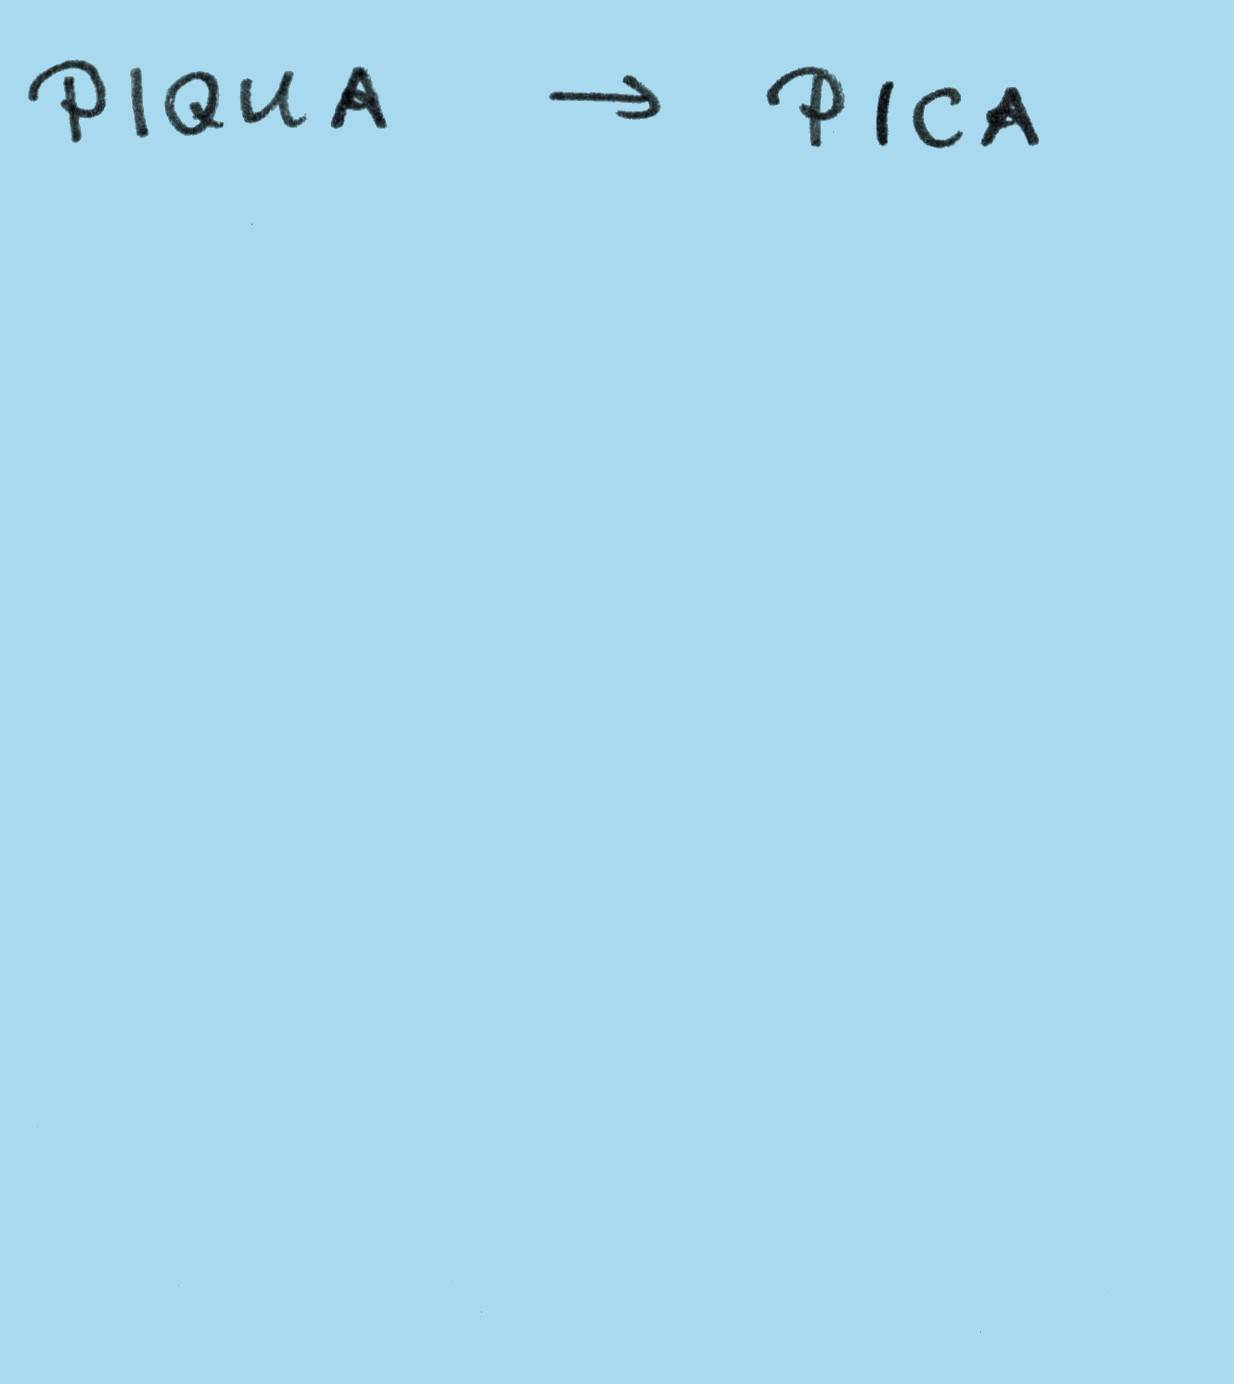 PIQUA → PICA